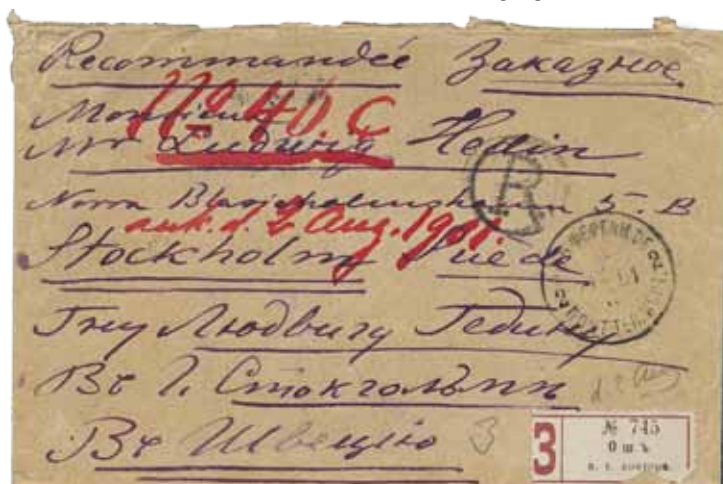 Recommandée Заказное
Monsieur
№ 40 C
Mr Ludwig Hedin
R
Norra Blasieholmshamn 5. B
ank. d. 2 Aug. 1901.
Stockholm Suède
Гну Людвигу Гедину
Въ Г. Стокгольмъ
d. 2 Aug
Въ Швецію 3
З № 745
Ошъ
п. т. контора.